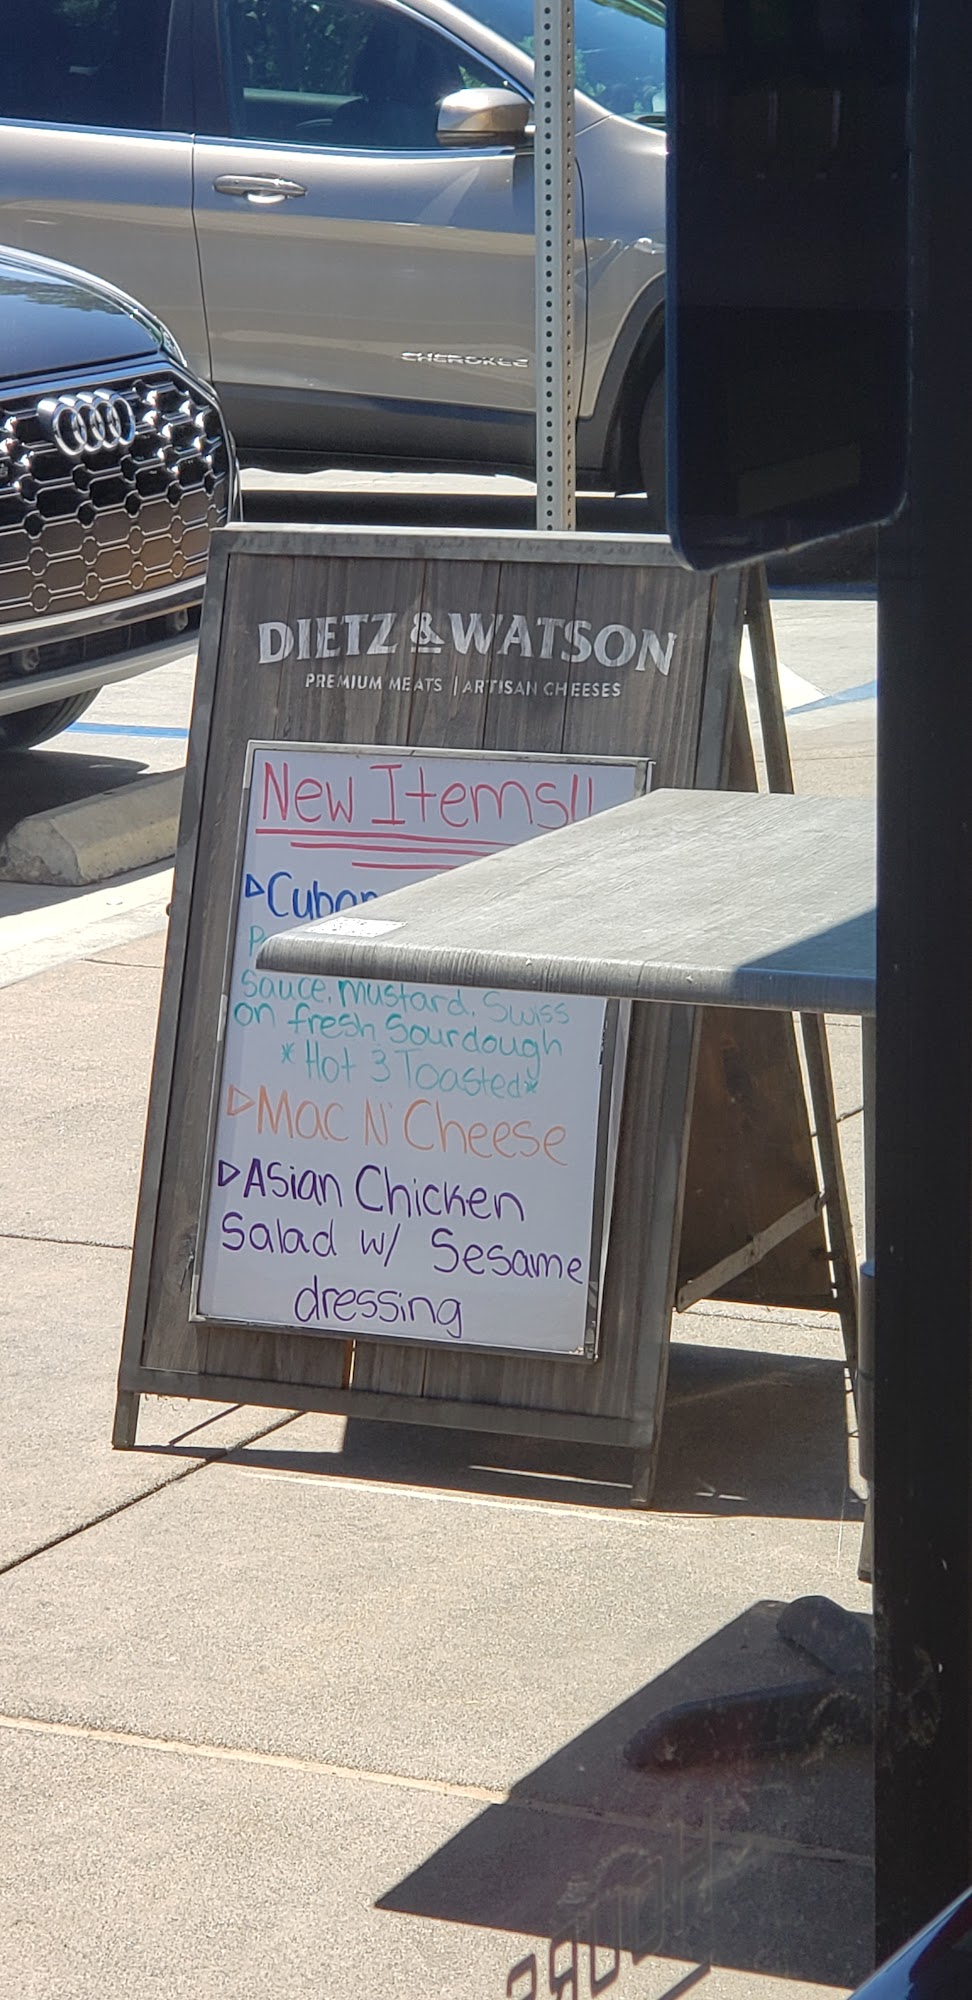 CHEROKEE
DIETZ & WATSON
PREMIUM MEATS | ARTISAN CHEESES
New Items!!
Sauce, Mustard, Swiss
on fresh Sourdough
*Hot & Toasted*
Mac N' Cheese
Asian Chicken
Salad w/ Sesame
dressing
HOURS